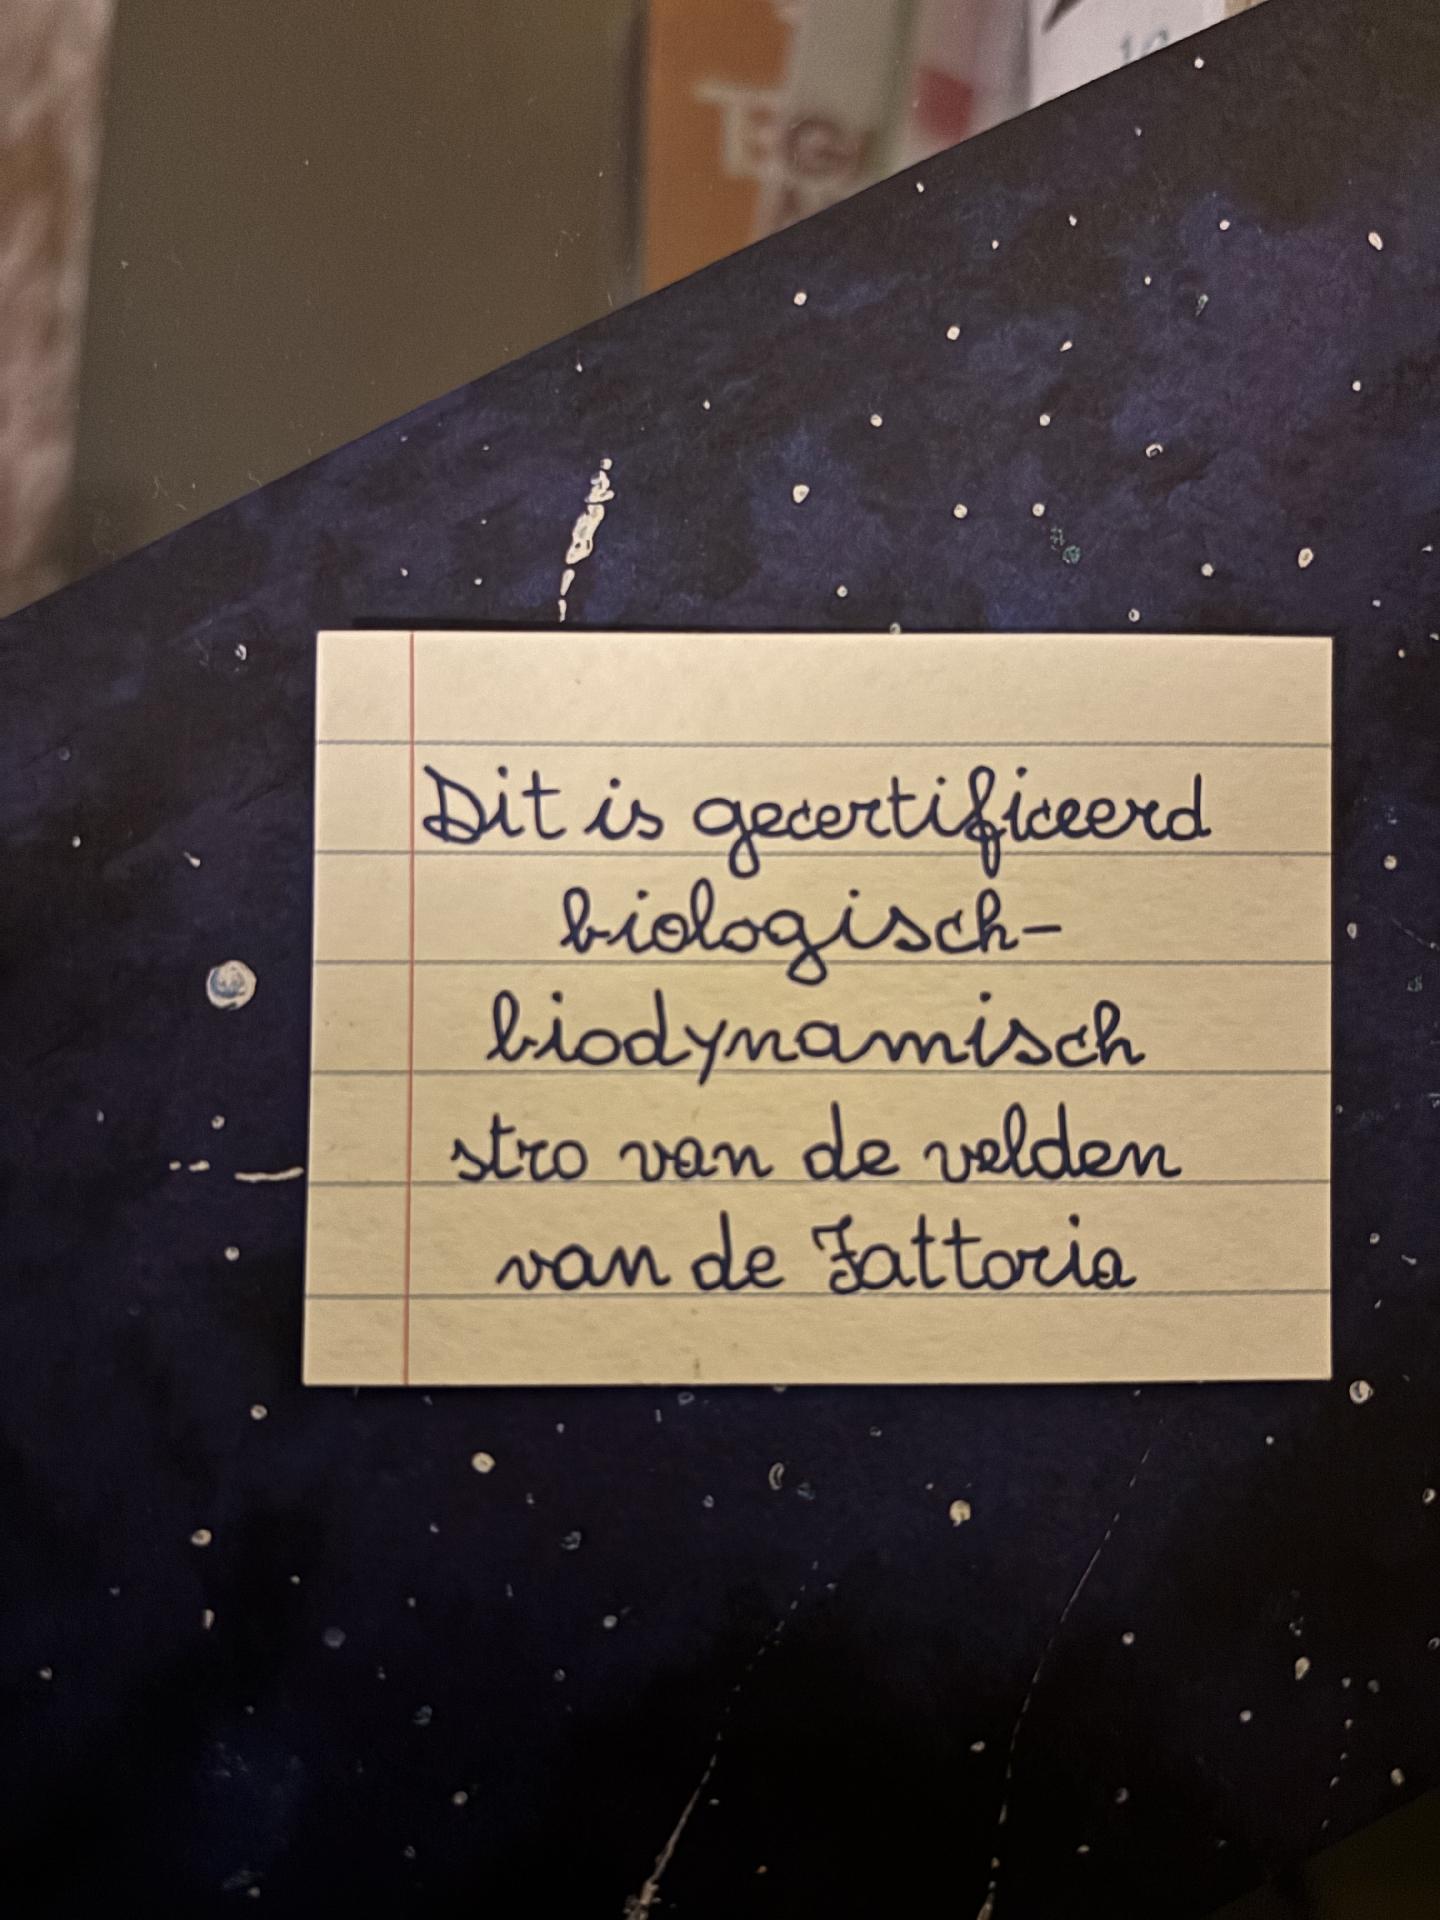 Dit is gecertificeerd
biologisch-
biodynamisch
stro van de velden
van de Fattoria